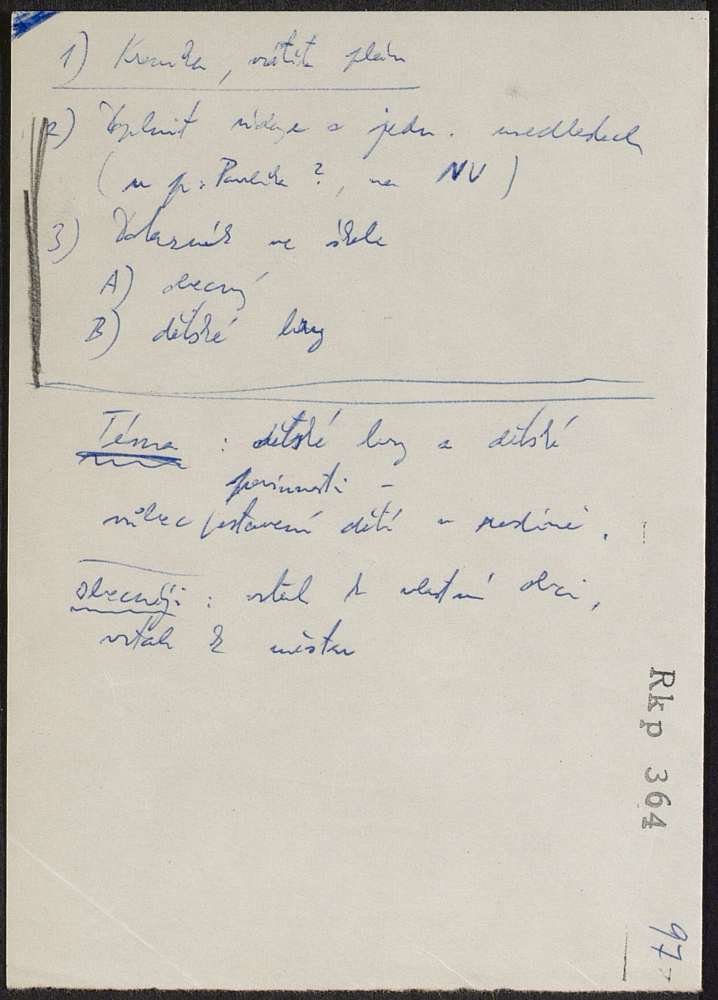 1) Kronika, vrátit plán
2) Vyplnit údaje o jedn. usedlostech
(u p. Pavelka?, na NV)
3) Dotazník ve škole
A) obecný
B) dětské hry
Téma: dětské hry a dětské
povinnosti -
vůbec postavení dětí v rodině.
obecněji: vztah k vlastní obci,
vztah k městu
Rkp 364
97